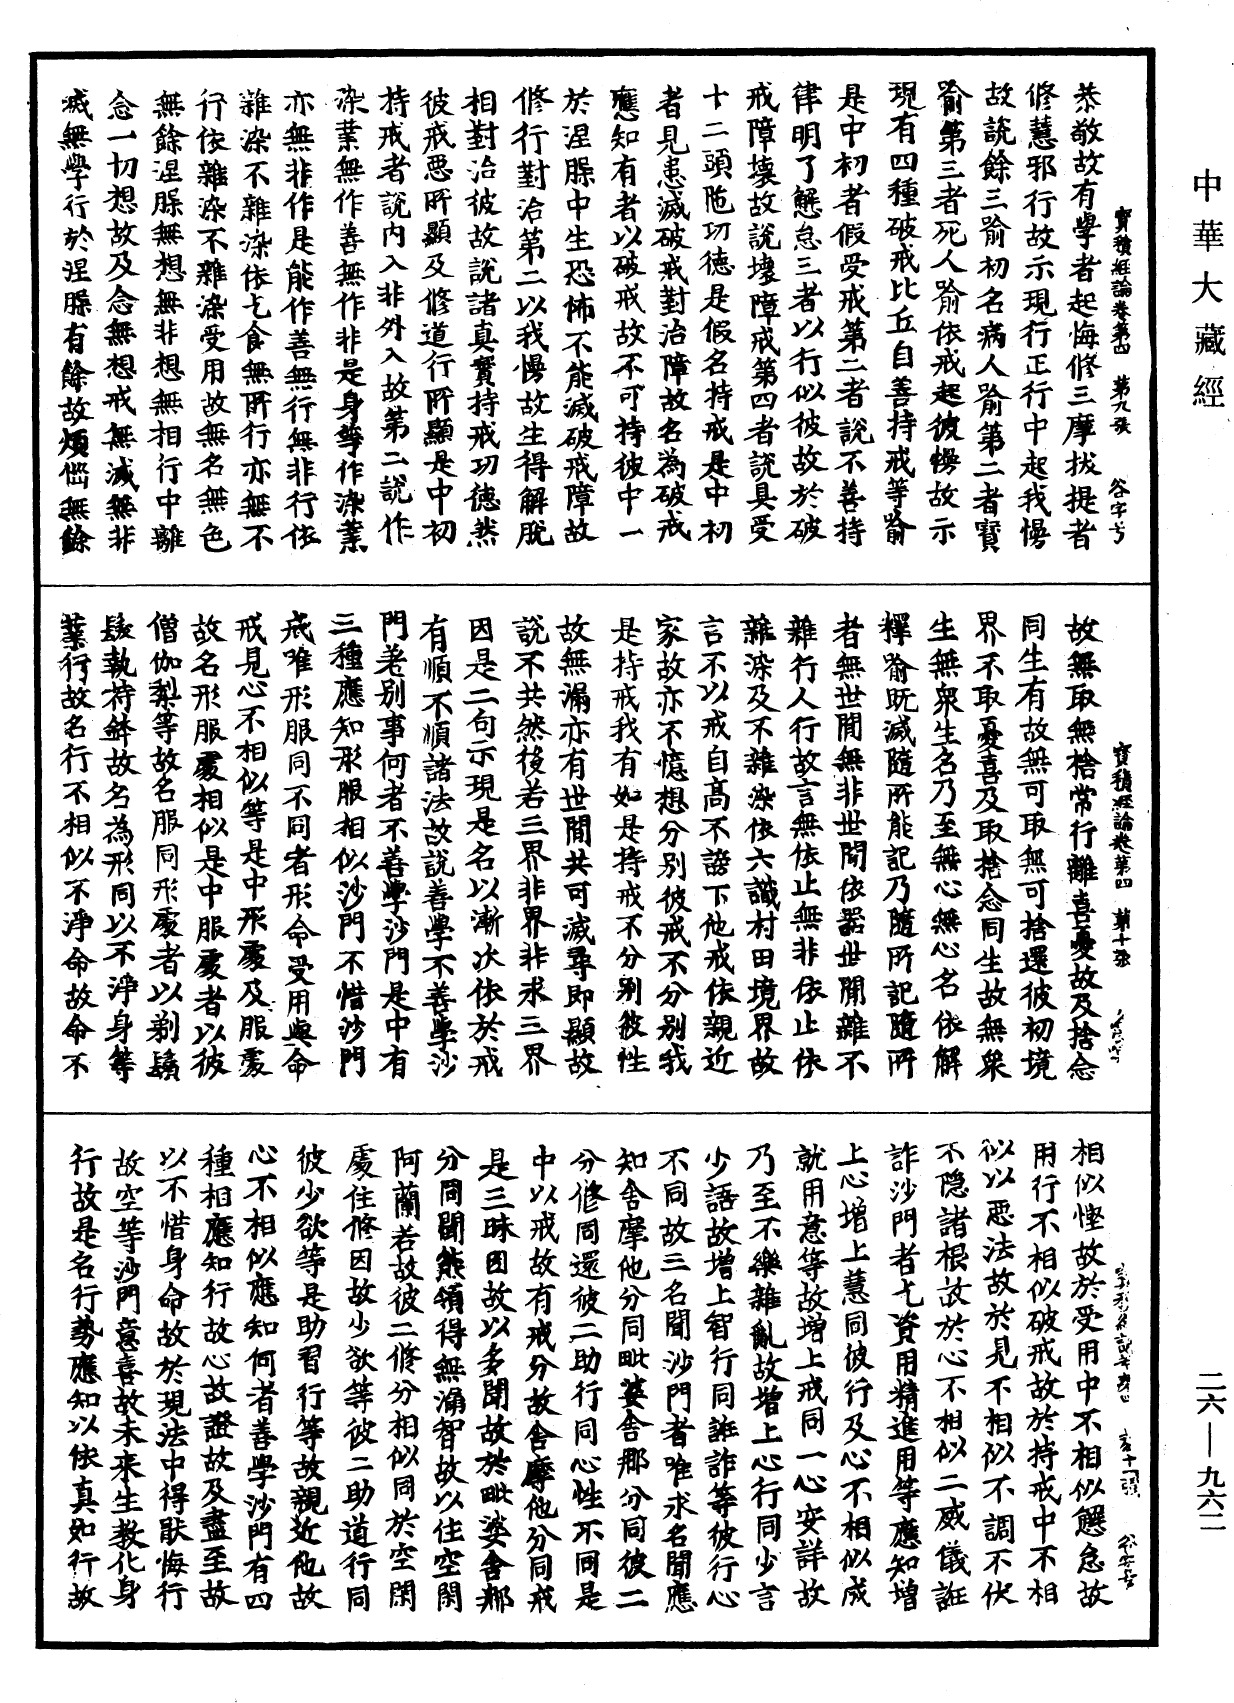 中華大藏經
寶積經論卷第四　第九張　谷字号
恭敬故有學者起悔修三摩拔提者
修慧邪行故示現行正行中起我慢
故說餘三喻初名病人喻第二者寶
喻第三者死人喻依戒起彼慢故示
現有四種破戒比丘自善持戒等喻
是中初者假受戒第二者說不善持
律明了懈怠三者以行似彼故於破
戒障壞故說壞障戒第四者說具受
十二頭陁功德是假名持戒是中初
者見恚滅破戒對治障故名為破戒
應知有者以破戒故不可持彼中一
於涅槃中生恐怖不能滅破戒障故
修行對治第二以我慢故生得解脫
相對治彼故說諸真實持戒功德然
彼戒惡所顯及修道行所顯是中初
持戒者說內入非外入故第二說作
染業無作善無作非是身等作染業
亦無非作是能作善無行無非行依
雜染不雜染依乞食無所行亦無不
行依雜染不雜染受用故無名無色
無餘涅槃無想無非想無相行中離
念一切想故及念無想戒無滅無非
滅無學行於涅槃有餘故煩惱無餘
寶積經論卷第四　第十張
故無取無捨常行離喜憂故及捨念
同生有故無可取無可捨還彼初境
界不取憂喜及取捨念同生故無眾
生無眾生名乃至無心無心名依解
釋喻既滅隨所能記乃隨所記隨所
者無世間無非世間依器世間離不
雜行人行故言無依止無非依止依
雜染及不雜染依六識村田境界故
言不以戒自高不謗下他戒依親近
家故亦不憶想分別彼戒不分別我
是持戒我有如是持戒不分別彼性
故無漏亦有世間共可滅尋即顯故
說不共然後若三界非界非求三界
因是二句示現是名以漸次依於戒
有順不順諸法故說善學不善學沙
門差別事何者不善學沙門是中有
三種應知形服相似沙門不惜沙門
戒唯形服同不同者形命受用與命
戒見心不相似等是中形處及服處
故名形服處相似是中服處者以彼
僧伽梨等故名服同形處者以剃鬚
髮執持鉢故名為形同以不淨身等
業行故名行不相似不淨命故命不
相似慳故於受用中不相似懈怠故
用行不相似破戒故於持戒中不相
似以惡法故於見不相似不調不伏
不隱諸根故於心不相似二威儀誑
詐沙門者乞資用精進用等應知增
上心增上慧同彼行及心不相似成
就用意等故增上戒同一心安詳故
乃至不樂雜亂故增上心行同少言
少語故增上智行同誑詐等彼行心
不同故三名聞沙門者唯求名聞應
知舍摩他分同毗婆舍那分同彼二
分修同還彼二助行同心性不同是
中以戒故有戒分故舍摩他分同戒
是三昧因故以多聞故於毗婆舍那
分同聞熊領得無漏智故以住空閑
阿蘭若故彼二修分相似同於空閑
處住修因故少欲等彼二助道行同
彼少欲等是助習行等故親近他故
心不相似應知何者善學沙門有四
種相應知行故心故證故及盡至故
以不惜身命故於現法中得猒悔行
故空等沙門意喜故未來生教化身
行故是名行勢應知以依真如行故
二六—九六二